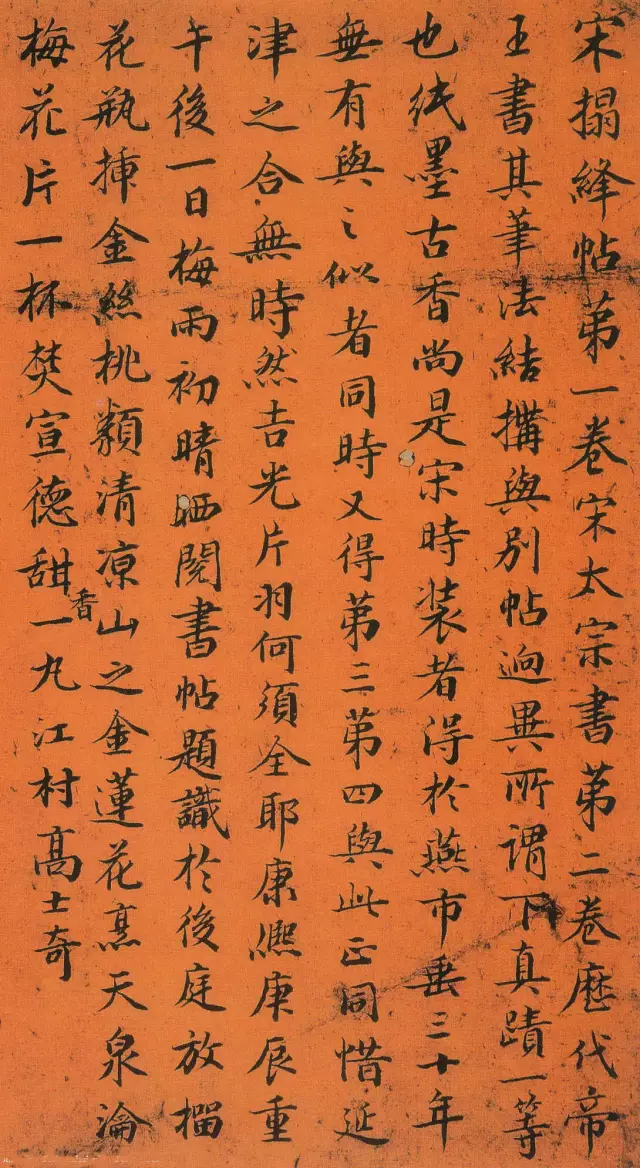 宋搨絳帖第一卷宋太宗書第二卷歷代帝
王書其筆法結搆與別帖迥異所謂下真蹟一等
也紙墨古香尚是宋時装者得於燕市垂三十年
無有與之似者同時又得第三第四與此正同惜延
津之合無時然吉光片羽何須全耶康熈庚辰重
午後一日梅雨初晴晒閱書帖題識於後庭放榴
花瓶揷金絲桃類清凉山之金蓮花烹天泉瀹
梅花片一杯焚宣德甜香一丸江村高士奇